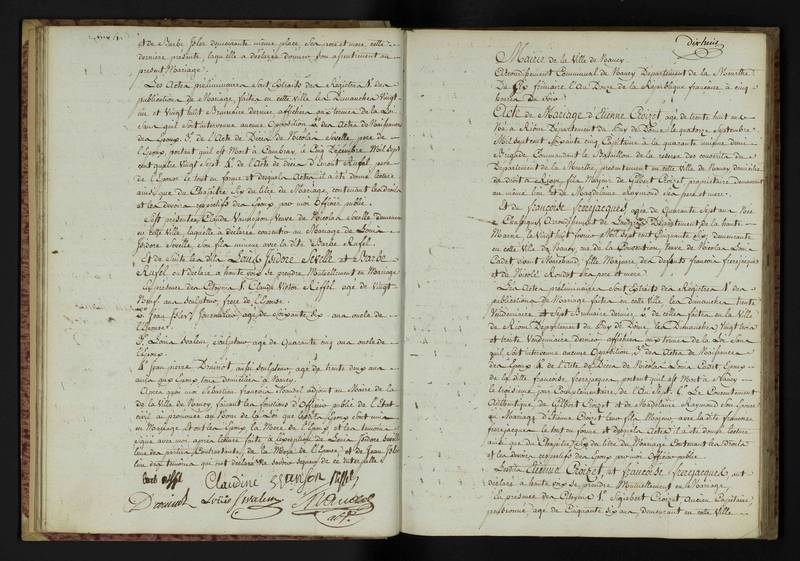 et de Barbe Joler demeurante même place, ses pere et mere, cette
derniere presente, laquelle a déclaré donner son assentiment au
present Mariage.
Les Actes preliminaires sont Extraits des Registres 1° des
publications de Mariage, faites en cette Ville les Dimanches Vingt
un et Vingt huit Brumaire dernier affichées aux termes de la Loi
sans qu'il soit intervenu aucune Opposition 2° des Actes de Naissances
des Epoux 3° de l'Acte de Décès de Nicolas Sevelle pere de
l'Epoux, portant qu'il est Mort à Cambray, le Cinq Décembre Mil Sept
cent quatre Vingt Sept 4° de l'Acte de décès
de l'Epouse le tout en forme et desquels Actes il a été donné lecture
ainsi que du Chapitre Six du titre du Mariage, contenant les droits
et les devoirs respectifs des Epoux par moi Officier public.
Est présente Claude Veuve de Nicolas Sevelle demeurant
en cette Ville, laquelle a déclaré consentir au Mariage de Louis
Isidore Sevelle, son fils mineur avec la dite Barbe
Et de Suite les dits Louis Isidore Sevelle et Barbe
ont déclaré à haute voix se prendre Mutuellement en Mariage
En presence des Citoyens 1° Claude Victor age de Vingt
Neuf ans Sculpteur, frere de l'Epouse.
2° Jean Joler Journalier age de Soixante Six ans oncle de
l'Epouse.
3° Louis sculpteur age de Quarante Cinq ans oncle de
l'Epoux.
4° Jean pierre aussi Sculpteur, age de trente deux ans
tous domiciliés à Nancy.
Après quoi moi Sébastien françois Mandel adjoint au Maire de la
de la Ville de Nancy faisant les fonctions d'Officier public de l'Etat
civil ai prononcé au Nom de la Loi que lesdits Epoux sont unis
en Mariage, et ont les Epoux, la Mere de l'Epoux et les temoins
signé avec moi après lecture faite, à l'exception de Louis Isidore Sevelle
l'une des parties Contractantes, de la Mere de l'Epouse, et de Jean Joler
l'un des temoins qui ont déclaré ne savoir signer de ce interpellés
Claudine
Louis
dixhuit
Mairie de la Ville de Nancy
Arrondissement Communal de Nancy Département de la Meurthe
Du Six frimaire l'An Douze de la République française à cinq
heures du Soir
Acte de Mariage d'Etienne Croizet age de trente huit ans
Né à Riom Département du Puy de Dome le quatorze Septembre
Mil Sept cent Soixante cinq Capitaine à la quarante unième demie
Brigade Commandant le Bataillon de la reserve des conscrits du
Département de la Meurthe, presentement en cette Ville de Nancy domicilié
de droit à Riom fils Majeur de Gilbert Croizet proprietaire demeurant
au même lieu et de Magdelaine Raymond ses pere et mere.
Et de françoise frerejacques, agée de Quarante Sept ans Née
à Arrondissement de Département de la haute
Marne, le Vingt huit fevrier Mil Sept cent Cinquante Six, demeurante
en cette Ville de Nancy, rue de la Constitution, Veuve de Nicolas Louis
Cadet fille Majeure des defunts françois frerejacques
et de Nicole Rondot ses pere et mere.
Les Actes preliminaires sont extraits des Registres 1° des
publications de Mariage faites en cette Ville, les Dimanches trente
Vendemiaire et Sept Brumaire dernier, et de celles faites en la Ville
de Riom Departement du Puy de Dome, les Dimanches Vingt trois
et trente Vendemiaire dernier affichées aux termes de la Loi Sans
qu'il soit intervenu aucune Opposition 2° des Actes de Naissances
des Epoux 3° de l'Acte de Décès de Nicolas Louis Cadet Epoux
de la dite francoise frerejacques, portant qu'il est Mort à Nancy
le troisieme jour Complementaire de l'An Sept 4° Le Consentement
Authentique de Gilbert Croizet et de Magdelaine Raymond son Epouse
au Mariage d'Etienne Croizet leur fils Majeur avec la dite francoise
frerejacques le tout en forme et desquels Actes il a été donné lecture
ainsi que du Chapitre Six du titre du Mariage Contenant les Droits
et les devoirs respectifs des Epoux par moi Officier public.
Lesdits Etienne Croizet et françoise frerejacques ont
déclaré à haute voix se prendre Mutuellement en Mariage.
En presence des Citoyens 1° Sigisbert Croizet Ancien Capitaine
pensionné, age de Cinquante Six ans, demeurant en cette Ville